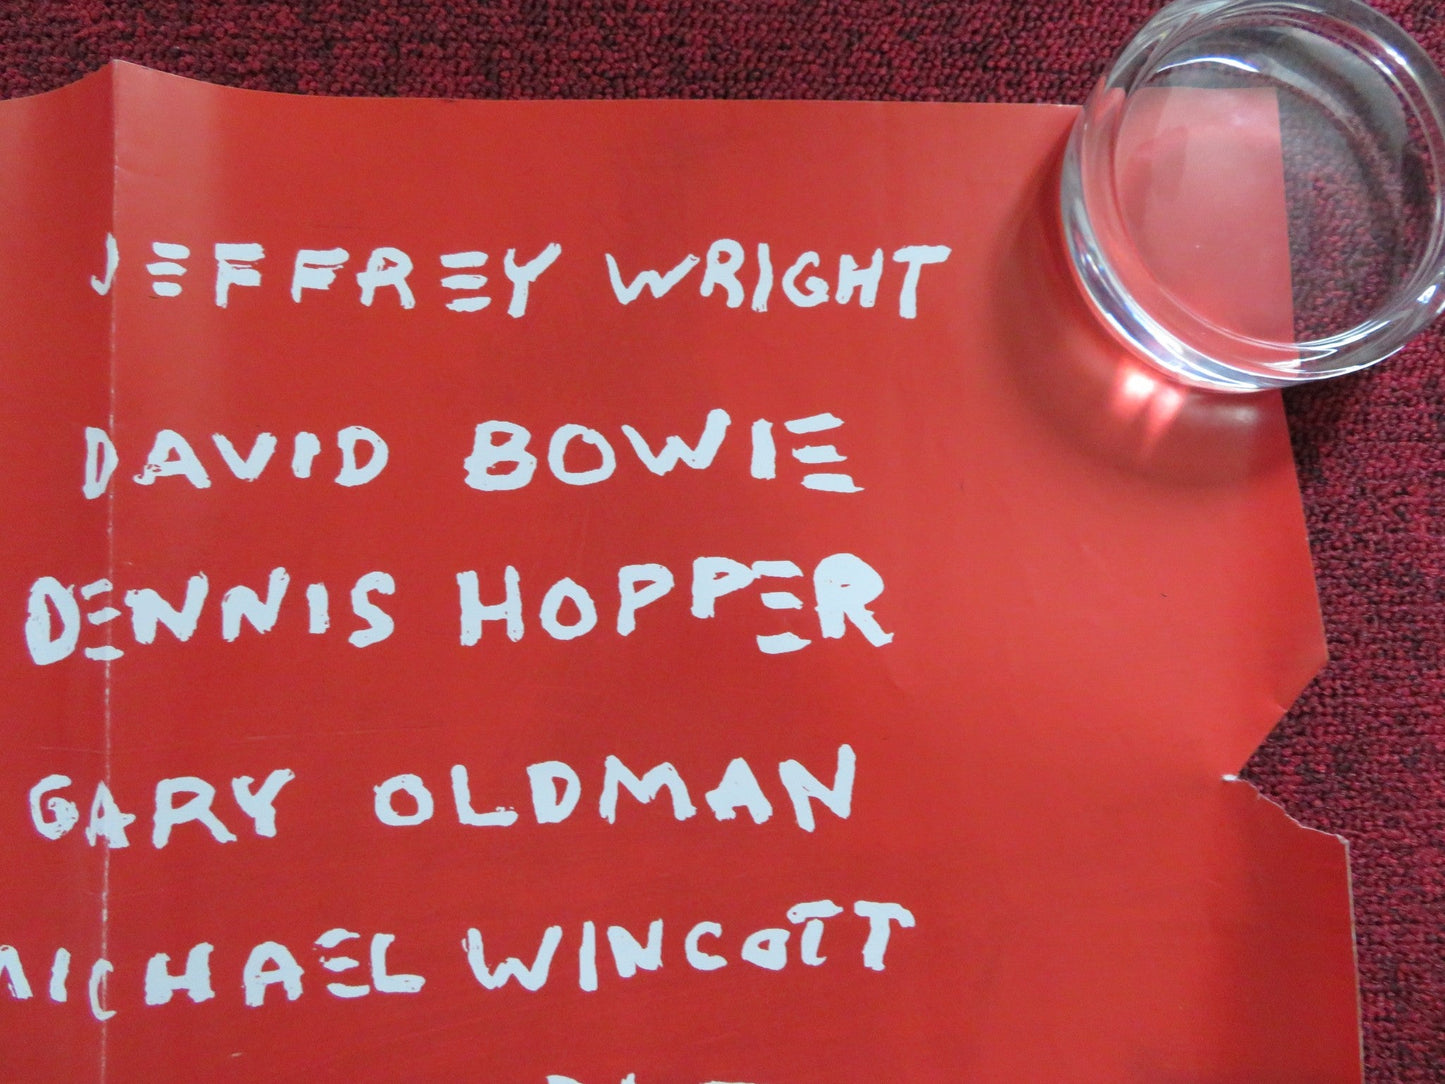 JEFFREY WRIGHT
DAVID BOWIE
DENNIS HOPPER
GARY OLDMAN
MICHAEL WINCOTT